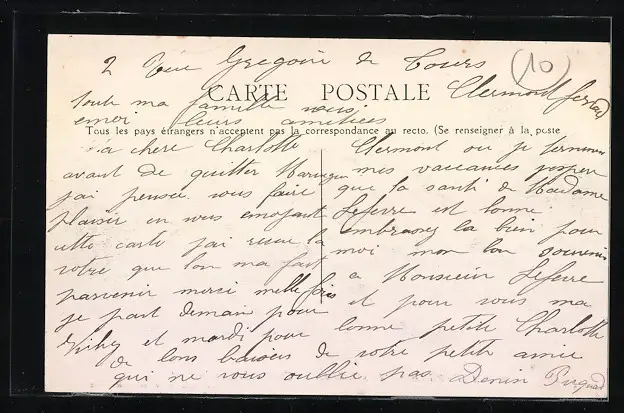 2 Rue Gregoire de Tours
(10)
Clermont ferrand
CARTE POSTALE
toute ma famille vous
envoi leurs amitiees
Tous les pays étrangers n'acceptent pas la correspondance au recto. (Se renseigner à la poste
Ma chere Charlotte
avant de quitter
j'ai pensée vous faire
plaisir en vous envoyant
cette carte j'ai recue la
votre que l'on ma fait
parvenir merci mille fois
je part demain pour
Vichy et mardi pour
Clermont ou je terminer
mes vaccances j'espere
que la santé de Madame
Lefevre est bonne
embrassez la bien pour
moi mon bon souvenir
a Monsieur Lefevre
et pour vous ma
bonne petite Charlotte
de bons baisers de votre petite amie
qui ne vous oublie pas